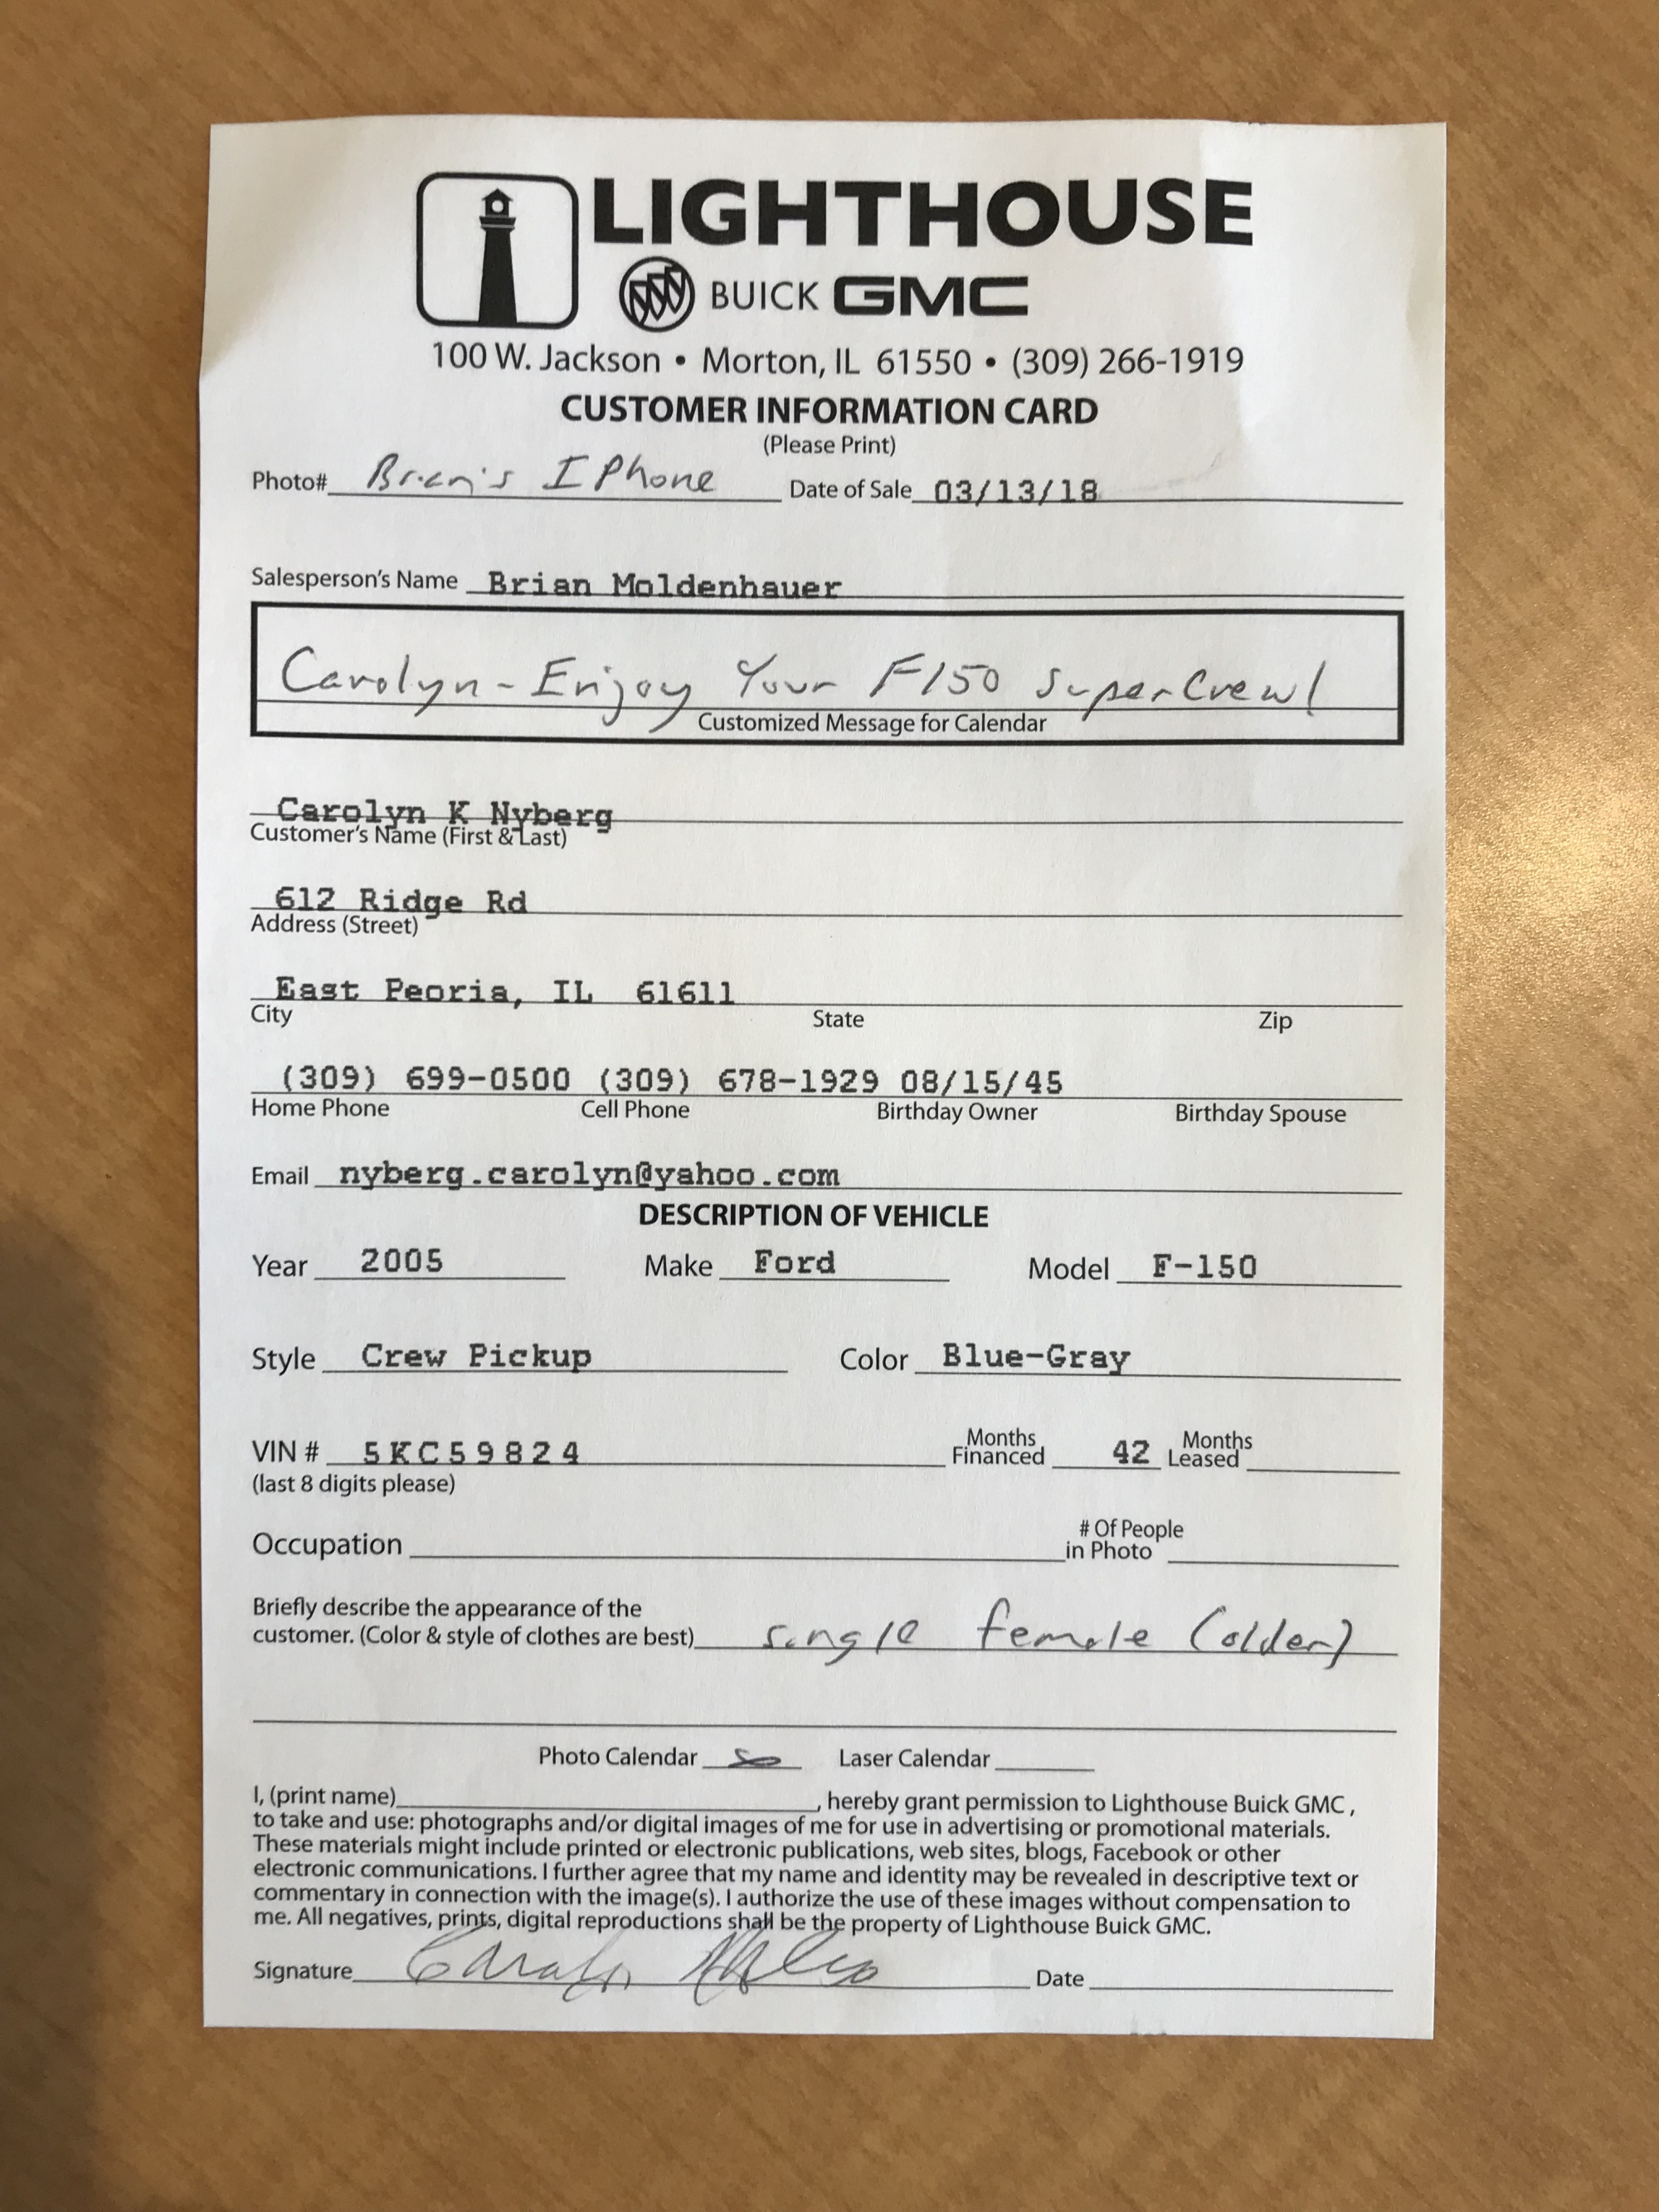 LIGHTHOUSE
BUICK GMC
100 W. Jackson • Morton, IL 61550 • (309) 266-1919
CUSTOMER INFORMATION CARD
(Please Print)
Photo# Brian's I Phone Date of Sale 03/13/18
Salesperson's Name Brian Moldenhauer
Carolyn - Enjoy Your F150 SuperCrew!
Customized Message for Calendar
Carolyn K Nyberg
Customer's Name (First & Last)
612 Ridge Rd
Address (Street)
East Peoria, IL 61611
City State Zip
(309) 699-0500 (309) 678-1929 08/15/45
Home Phone Cell Phone Birthday Owner Birthday Spouse
Email nyberg.carolyn@yahoo.com
DESCRIPTION OF VEHICLE
Year 2005 Make Ford Model F-150
Style Crew Pickup Color Blue-Gray
VIN # 5KC59824 Months Financed 42 Months Leased
(last 8 digits please)
Occupation # Of People in Photo
Briefly describe the appearance of the
customer. (Color & style of clothes are best) single female (older)
Photo Calendar Laser Calendar
I, (print name) , hereby grant permission to Lighthouse Buick GMC ,
to take and use: photographs and/or digital images of me for use in advertising or promotional materials.
These materials might include printed or electronic publications, web sites, blogs, Facebook or other
electronic communications. I further agree that my name and identity may be revealed in descriptive text or
commentary in connection with the image(s). I authorize the use of these images without compensation to
me. All negatives, prints, digital reproductions shall be the property of Lighthouse Buick GMC.
Signature Carolyn Nyberg Date